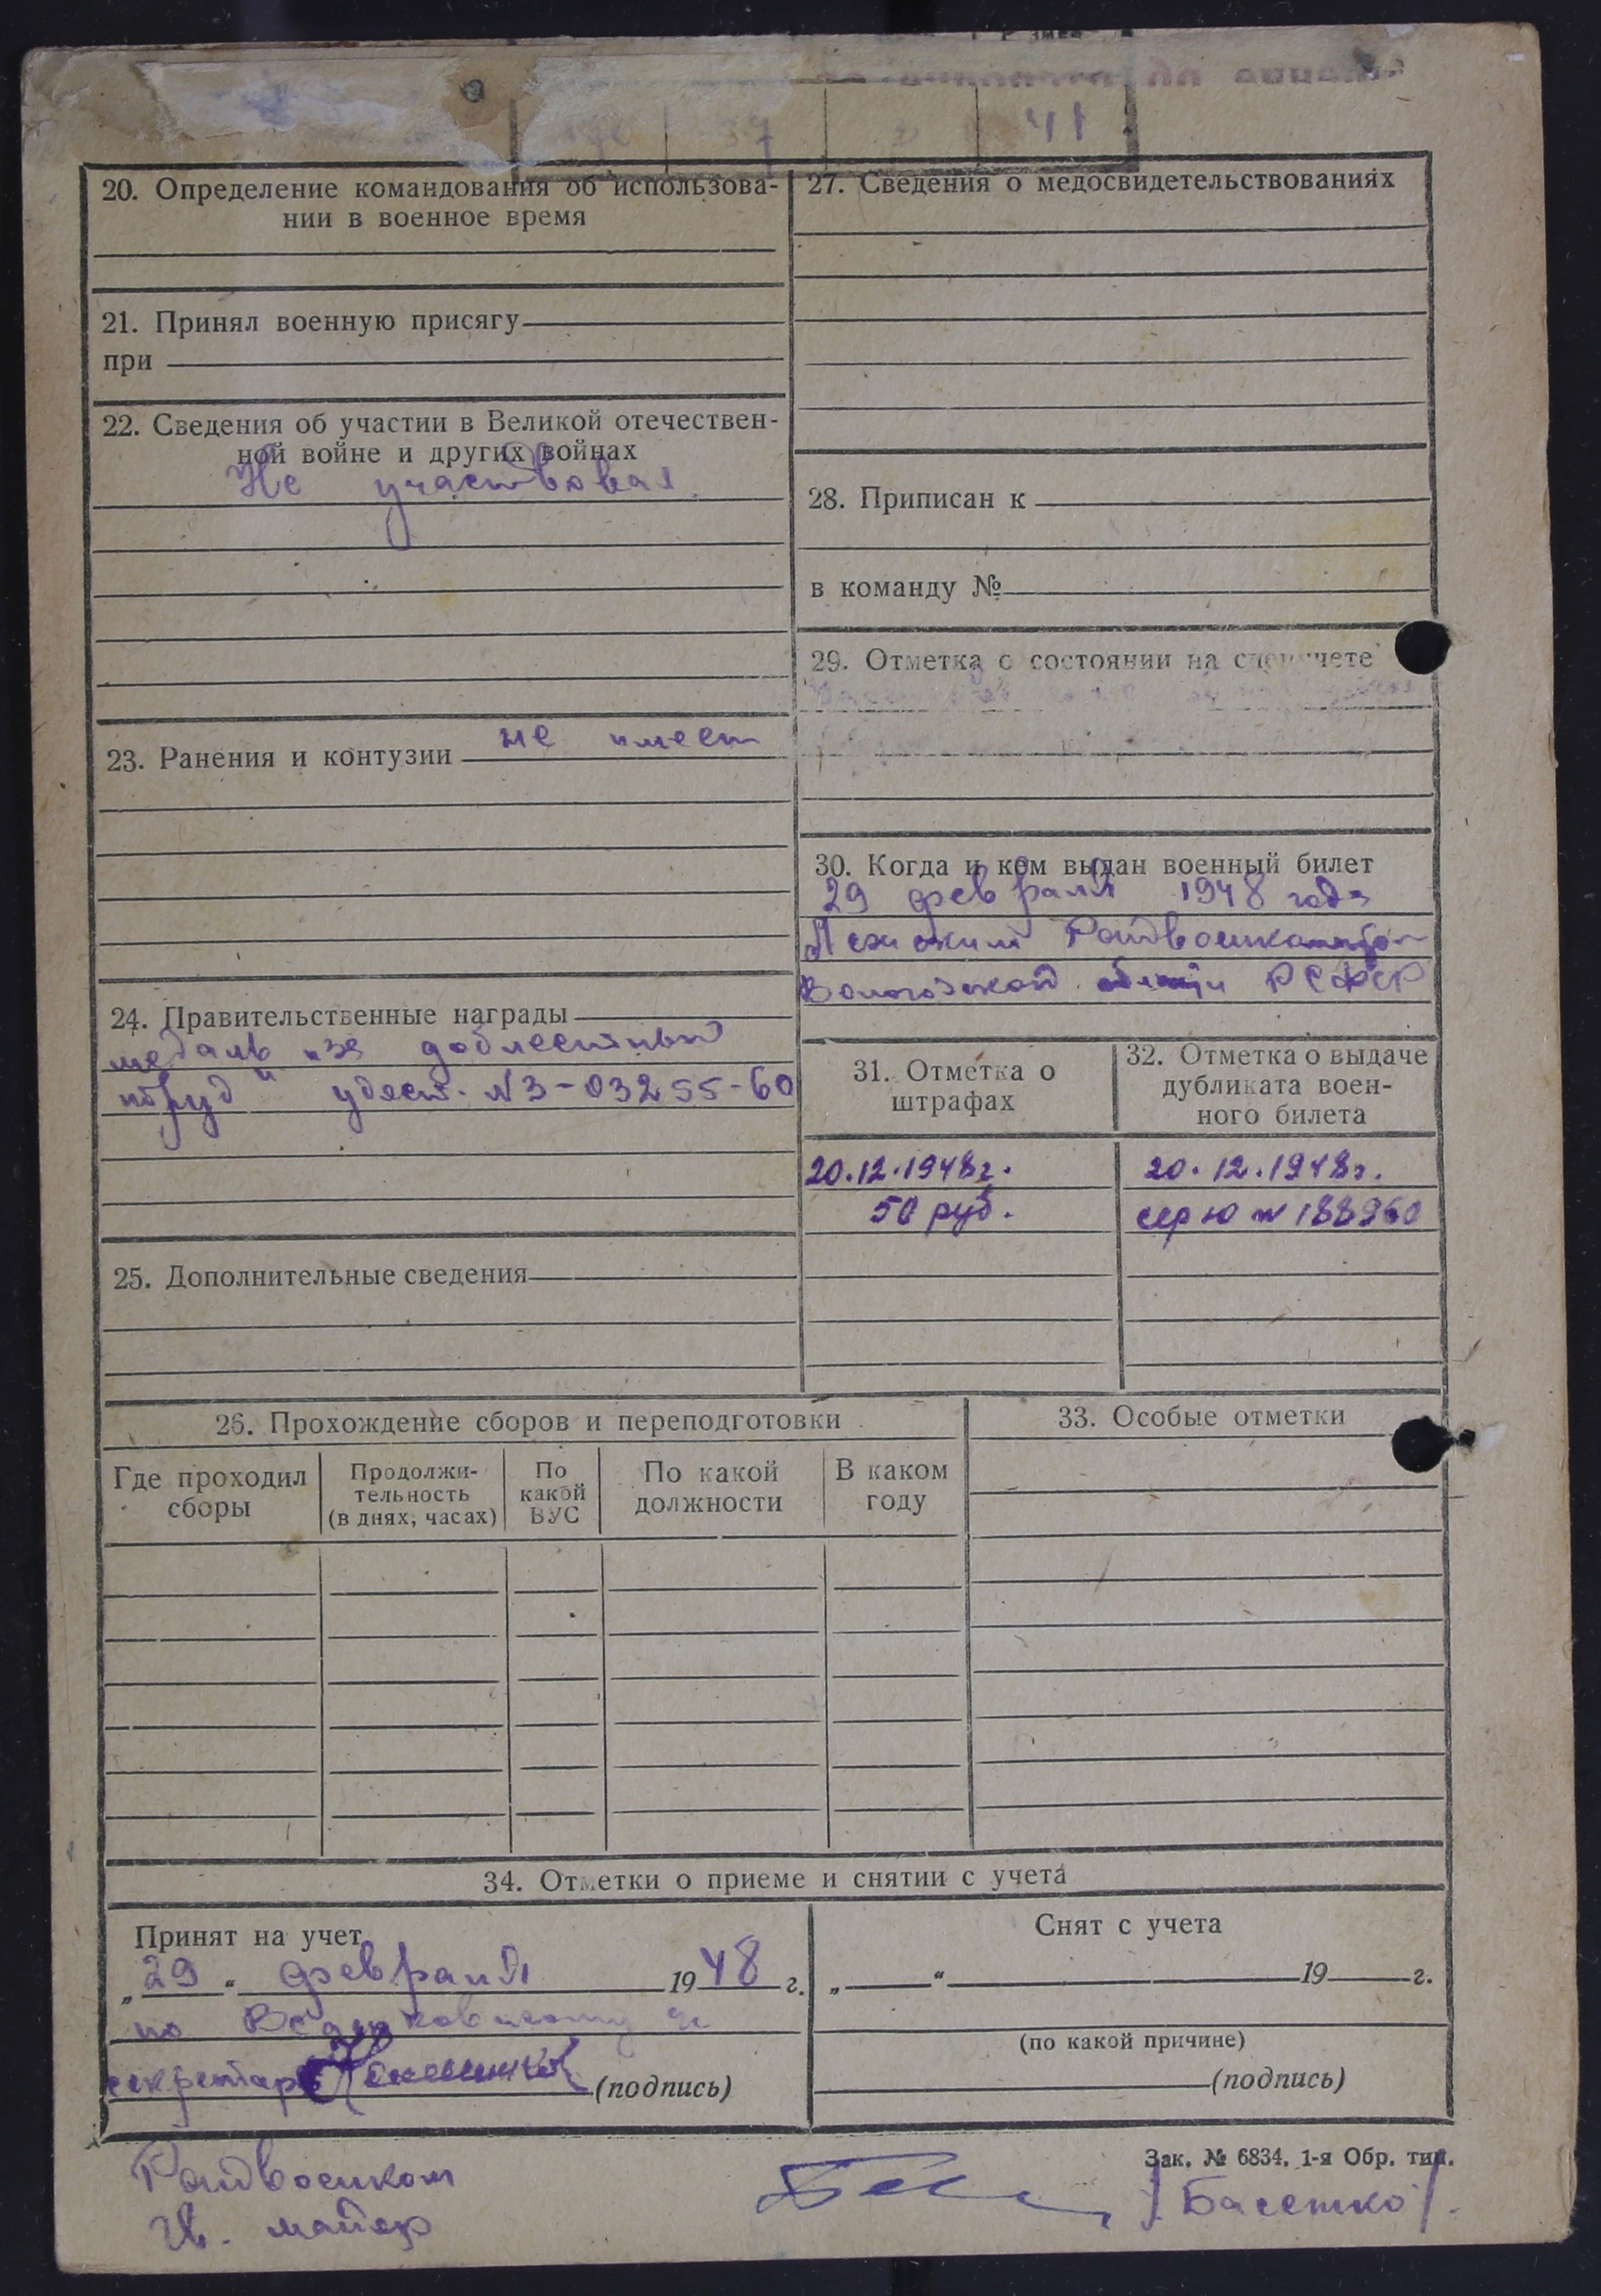 41
20. Определение командования об использова-
нии в военное время
21. Принял военную присягу
при
22. Сведения об участии в Великой отечествен-
ной войне и других войнах
Не участвовал.
23. Ранения и контузии не имеет
24. Правительственные награды
медаль "за доблестный
труд" удост. N З-03255-60
25. Дополнительные сведения
27. Сведения о медосвидетельствованиях
28. Приписан к
в команду №
29. Отметка о состоянии на спецучете
30. Когда и кем выдан военный билет
29 февраля 1948 года
Райвоенкоматом
Вологодской области РСФСР
31. Отметка о
штрафах
20.12.1948г.
50 руб.
32. Отметка о выдаче
дубликата воен-
ного билета
20.12.1948г.
сер Ю № 188960
26. Прохождение сборов и переподготовки
Где проходил
сборы
Продолжи-
тельность
(в днях, часах)
По
какой
ВУС
По какой
должности
В каком
году
33. Особые отметки
34. Отметки о приеме и снятии с учета
Принят на учет
„29“ февраля 1948 г.
по
секретарь (подпись)
Снят с учета
„ “ 19 г.
(по какой причине)
(подпись)
Зак. № 6834. 1-я Обр. тип.
Райвоенком
майор /Басенко/.